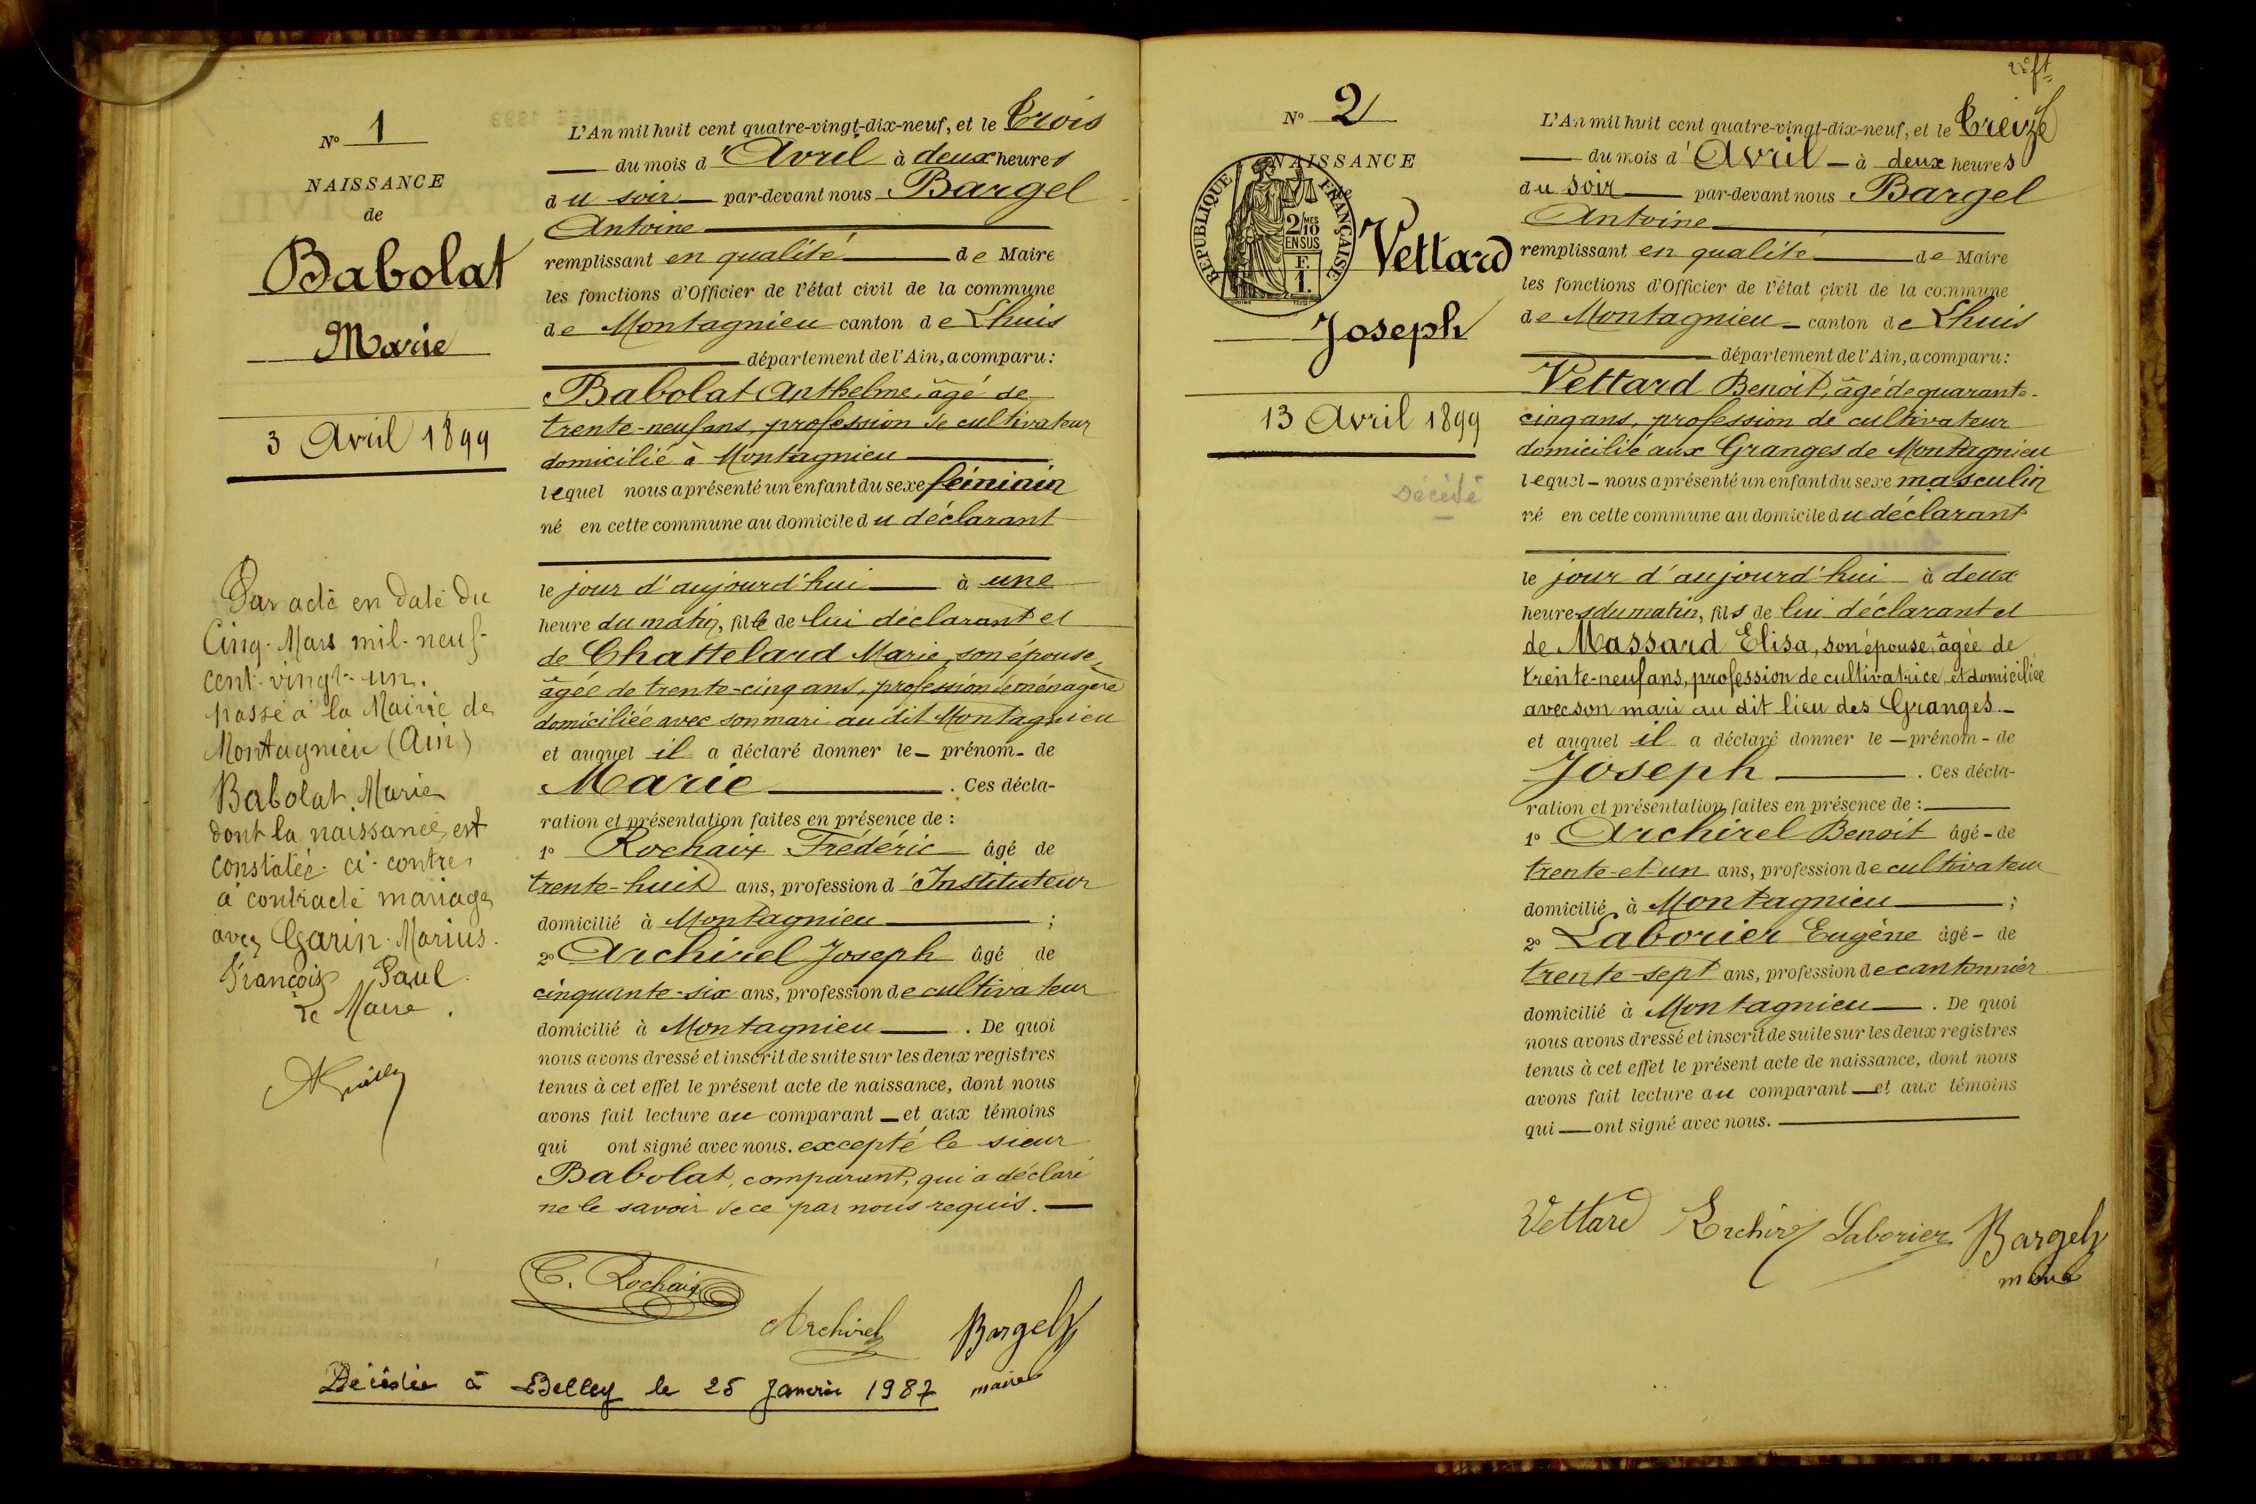 N° 1
NAISSANCE
de
Babolat
Marie
3 Avril 1899
Par acte en date du
Cinq-Mars mil-neuf-
cent-vingt-un.
passé à la Mairie de
Montagnieu (Ain)
Babolat Marie
dont la naissance est
constatée ci-contre
a contracté mariage
avec Garin Marius
François Paul
Le Maire.
L'An mil huit cent quatre-vingt-dix-neuf, et le Trois
du mois d'Avril à deux heures
du soir par-devant nous Bargel
Antoine
remplissant en qualité de Maire
les fonctions d'Officier de l'état civil de la commune
de Montagnieu canton de Lhuis
département de l'Ain, a comparu :
Babolat Anthelme, âgé de
trente-neuf ans, profession de cultivateur
domicilié à Montagnieu
lequel nous a présenté un enfant du sexe féminin
né en cette commune au domicile du déclarant
le jour d'aujourd'hui à une
heure du matin, fille de lui déclarant et
de Chattelard Marie, son épouse,
âgée de trente-cinq ans, profession de ménagère
domiciliée avec son mari au dit Montagnieu
et auquel il a déclaré donner le prénom de
Marie. Ces décla-
ration et présentation faites en présence de :
1° Rochaix Frédéric âgé de
trente-huit ans, profession d'Instituteur
domicilié à Montagnieu ;
2° Archirel Joseph âgé de
cinquante-six ans, profession de cultivateur
domicilié à Montagnieu. De quoi
nous avons dressé et inscrit de suite sur les deux registres
tenus à cet effet le présent acte de naissance, dont nous
avons fait lecture au comparant et aux témoins
qui ont signé avec nous. excepté le sieur
Babolat, comparant, qui a déclaré
ne le savoir de ce par nous requis.
Rochaix
Archirel Bargel
maire
Décédée à Belley le 25 Janvier 1987
N° 2
NAISSANCE
de
RÉPUBLIQUE FRANÇAISE
2/10 MES
EN SUS
F.
1.
Vettard
Joseph
13 Avril 1899
décédé
L'An mil huit cent quatre-vingt-dix-neuf, et le Treize
du mois d'Avril à deux heures
du soir par-devant nous Bargel
Antoine
remplissant en qualité de Maire
les fonctions d'Officier de l'état civil de la commune
de Montagnieu canton de Lhuis
département de l'Ain, a comparu :
Vettard Benoit, âgé de quarante-
cinq ans, profession de cultivateur
domicilié aux Granges de Montagnieu
lequel nous a présenté un enfant du sexe masculin
né en cette commune au domicile du déclarant
le jour d'aujourd'hui à deux
heures du matin, fils de lui déclarant et
de Massard Elisa, son épouse, âgée de
trente-neuf ans, profession de cultivatrice, et domiciliée
avec son mari au dit lieu des Granges.
et auquel il a déclaré donner le prénom de
Joseph. Ces décla-
ration et présentation faites en présence de :
1° Archirel Benoit âgé de
trente-et-un ans, profession de cultivateur
domicilié à Montagnieu ;
2° Laborier Eugène âgé de
trente-sept ans, profession de cantonnier
domicilié à Montagnieu. De quoi
nous avons dressé et inscrit de suite sur les deux registres
tenus à cet effet le présent acte de naissance, dont nous
avons fait lecture au comparant et aux témoins
qui ont signé avec nous.
Vettard Archirel Laborier Bargel
maire